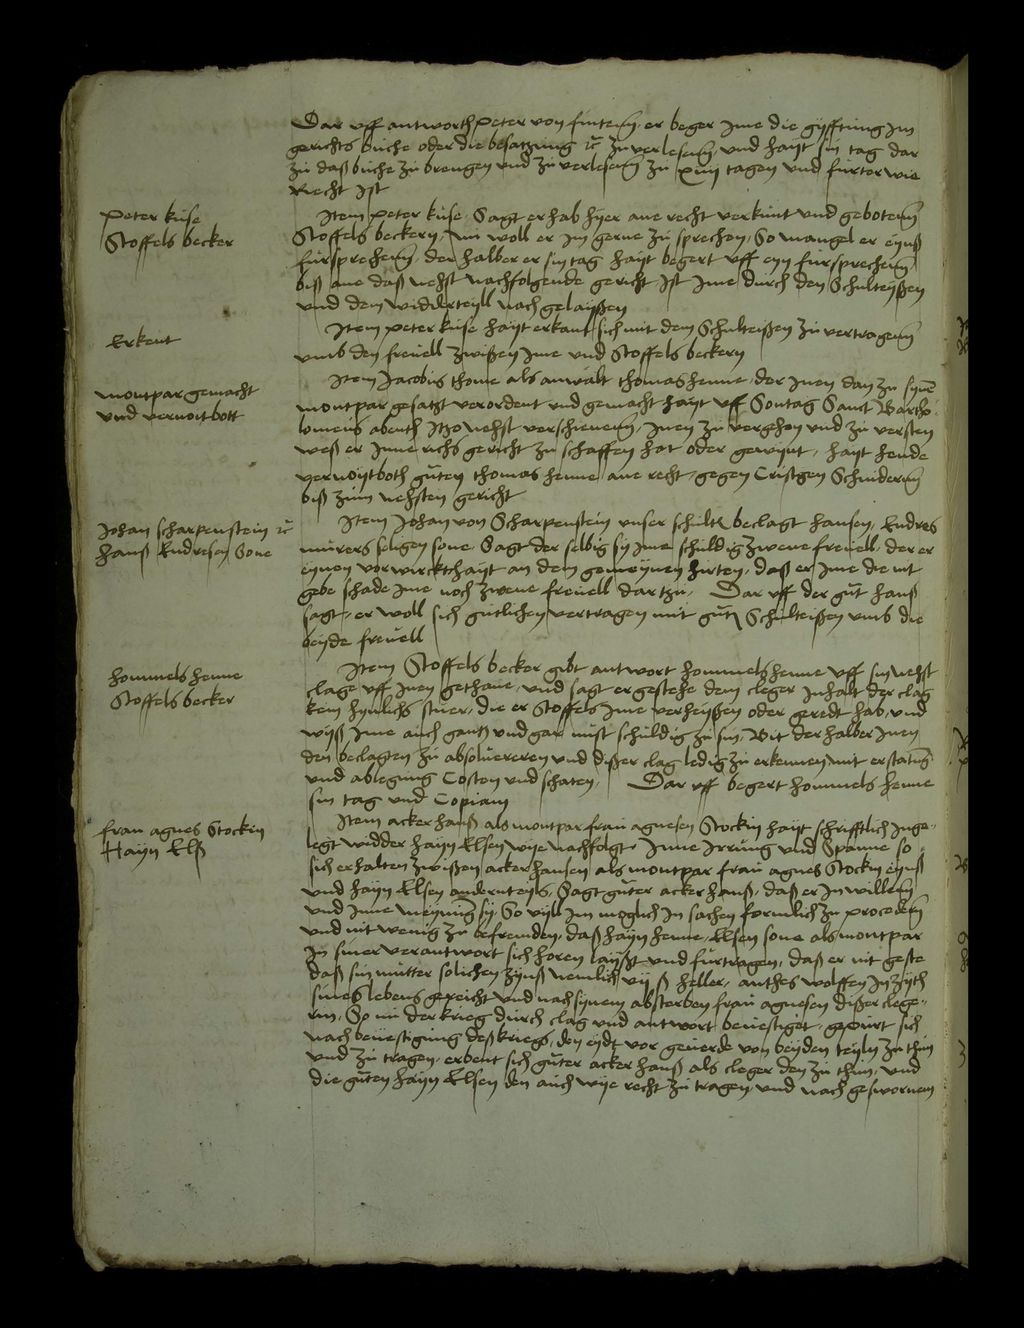 Dar uff antworth Peter von fintem er beger Ime die gyfftung Im
gerichts buche oder die besatzung zuverlesenn und hayt sin tag dar
zu daß buche zu brengen und zuverlesenn zu xiiij tagen und furter wie
Recht ist
Peter kuse
Stoffels becker
Item Peter kuse Sagt er hab hyer ane recht verkunt und gebotenn
Stoffels beckern, nu woll er Im gerne zu sprechen, So mangel er eynß
fursprechenn, der halber er sin tag hayt begert uff eyn fursprechenn
biß ane daß nehst nachfolgende gericht, Ist Ime durch den Schulteyßen
und dem widderteyll nach gelayßen
Erkent
Item Peter kuse hayt erkant sich mit dem Schulteißen zu vertragenn
umb den frevell zwißen Ime und Stoffels beckern
montpar gemacht
und vernoitbott
Item Jacobus thome als anwalt thomas henne, der Inen dan zu synem
montpar gesatzt verordent und gemacht hayt uff Sontag Sanct Bartho
lomeus abenth Itzo nehst verschienenn, Inen zu vergehen und zu versten
weß er Inne richs gericht zu schaffen hat oder gewynt, hayt hende
vernoytboth guter thomas henne ane recht, gegen Cristgen Schniderenn
biß zum nehsten gericht
Johan scharpenstein
Hanß Endresen Sone
Item Johan von Scharpenstein unser schult beclagt Hansen, Endres
murers seligen sone, Sagt der selbig sy Ime schuldig zwene frevell, der er
eynen verwirckt hayt an dem gemeynen hirten, daß er Ime die nit
gebe schade Ime noch zwene frevell dar tzu. Dar uff der gut hanß
sagt, er woll sich gutlichen vertragen mit gut Schulteißen umb die
beyde frevell
Hommels henne
Stoffels becker
Item Stoffels becker gibt antwort Hommels henne uff sin nehst
clage uff Inen gethane, und sagt er gestehe dem cleger Inhalt der clag
kein hynlichs stuer, die er Stoffels Ime verheyßen oder geredt hab, und
wyß Ime auch gantz und gar nust schuldig zu sin, Bit der halber Inen
den beclagten zu absolueren und dißer clag ledig zu erkennen mit erstatung
und ablegung Costen und schaten, Dar uff begert Hommels henne
sin tag und Copiam
frau agnes Stockin
Hayn Elß
Item acker hanß als montpar frau agnesen Stockin hayt schrifftlich Inge-
legt widder hayn Elsen wye nachfolgt, Inne Irrung und Spanne so
sich erhalten zwißen acker hansen als montpar frau agnes Stockin eynß
und hayn Elsen anderteyls, Sagt guter acker hanß, daß er In willenn
und Inne meynung sy, So vyll Im moglich In sachen formlich zu procedern
und nit wenig zu befremden, daß hayn henne, Elsen sone als montpar
In siner verantwort sich horen layßt und furtragen, daß er nit geste
daß sin mutter solichen zynß nemlich vij ß heller, anthes wolffen In zyth
sines lebens gereicht und nach synem absterben frau agnesen dißer clege-
rin, So nu der krieg durch clag und antwort bevestiget, gepurt sich
nach bevestigung deß kriegs, den eydt vor geverde von beyden teyln zu thun
und zu tragen, erbeut sich guter acker hanß als cleger den zu thun, und
die guten hayn Elsen den auch wye recht zu tragen, und nach geswornem